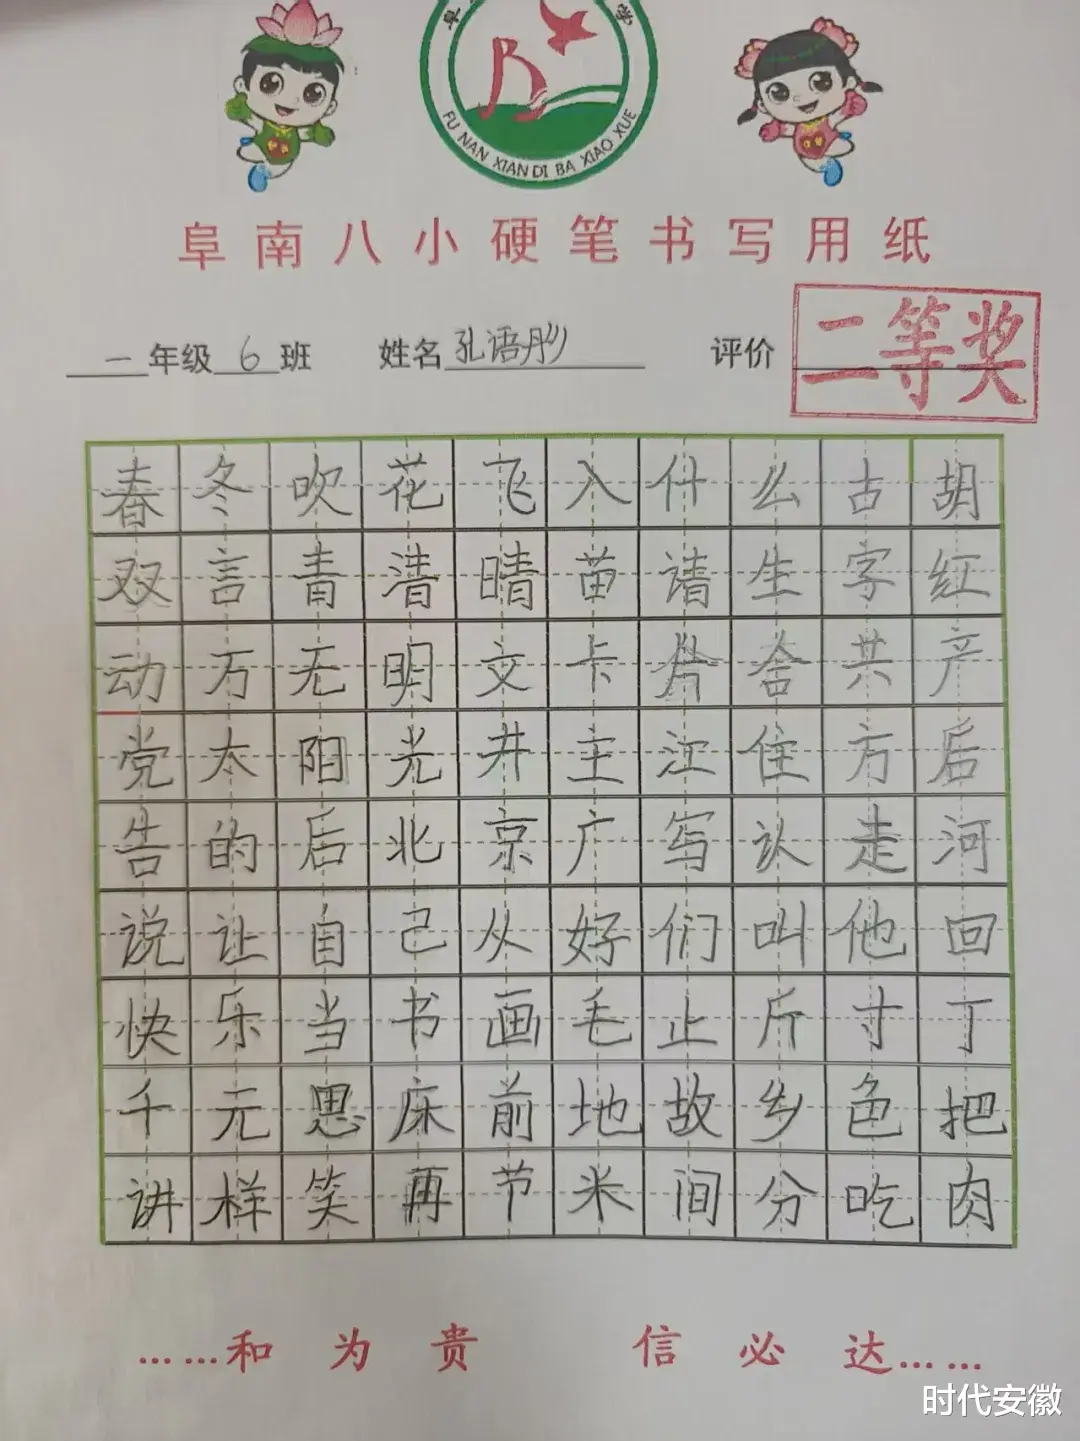 FU NAN XIAN DI BA XIAO XUE
阜南八小硬笔书写用纸
一年级 6 班 姓名 孔语彤 评价 二等奖
春冬吹花飞入什么古胡
双言青清晴苗请生字红
动万无明文卡片合共产
党太阳光井主江住方后
告的后北京广写认走河
说让自己从好们叫他回
快乐当书画毛止斤寸丁
千元思床前地故乡色把
讲样笑再节米间分吃肉
……和为贵 信必达……
时代安徽